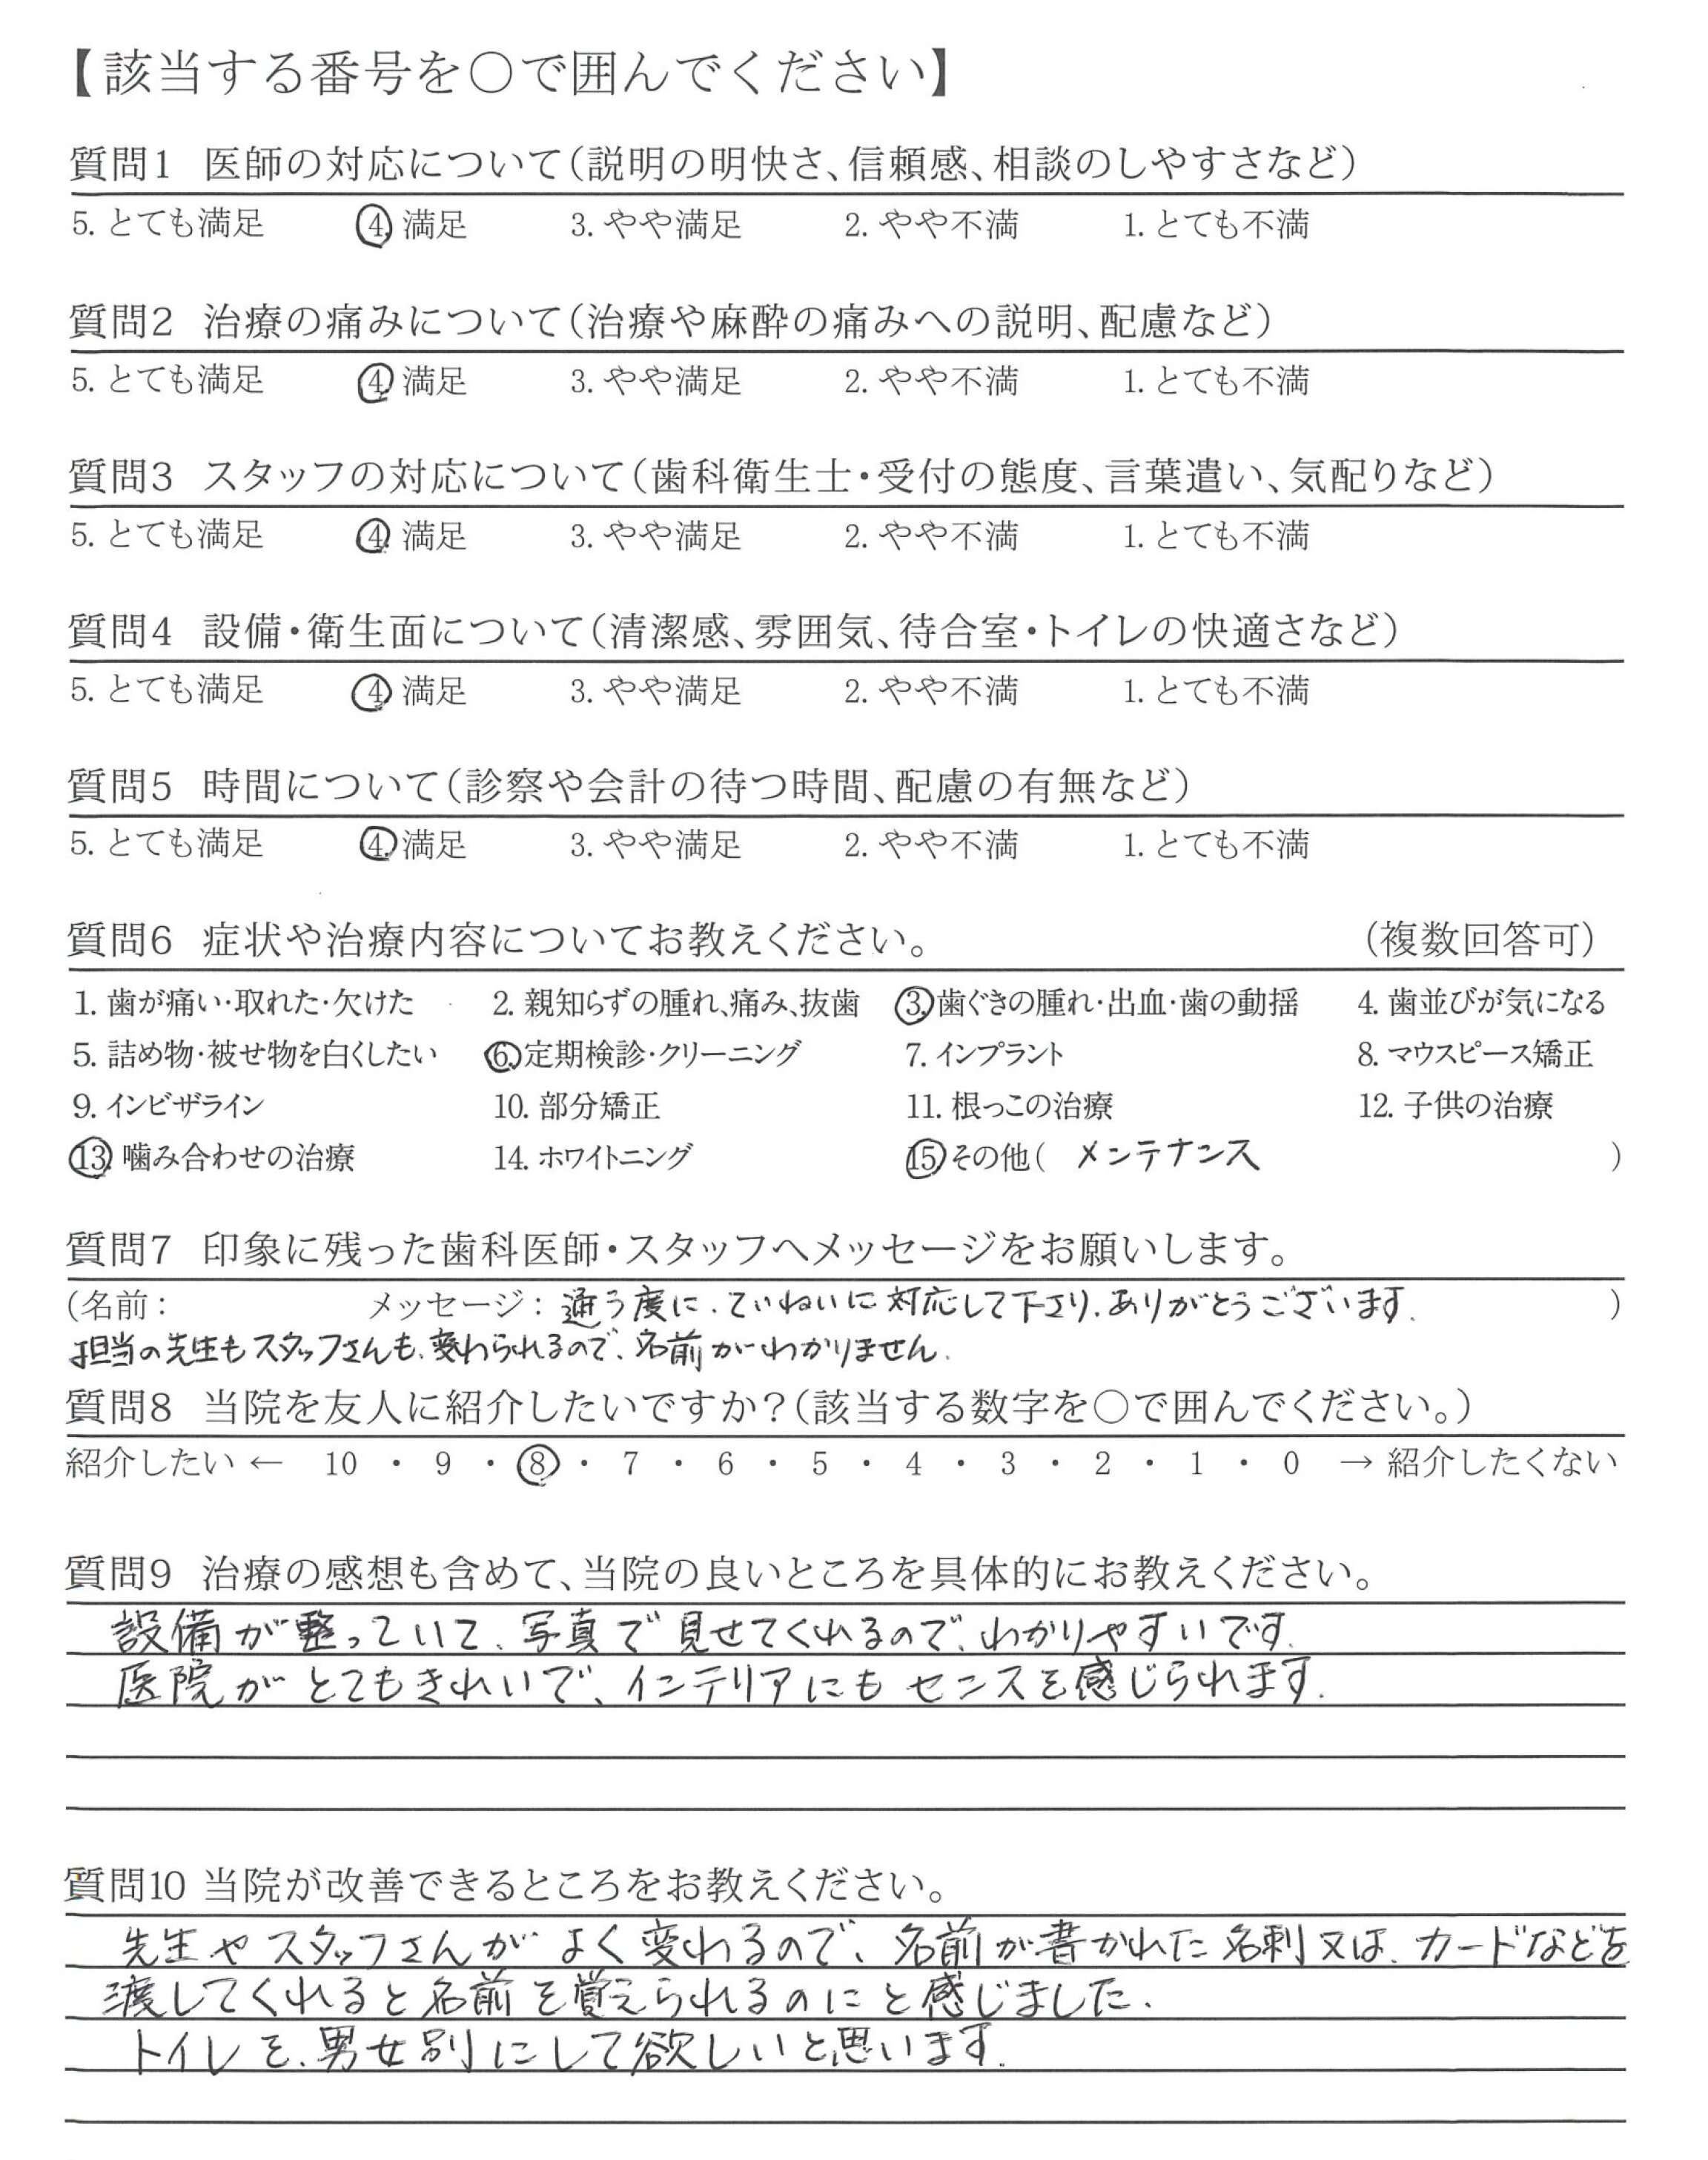 【該当する番号を〇で囲んでください】
質問1 医師の対応について(説明の明快さ、信頼感、相談のしやすさなど)
5. とても満足 4. 満足 3. やや満足 2. やや不満 1. とても不満
質問2 治療の痛みについて(治療や麻酔の痛みへの説明、配慮など)
5. とても満足 4. 満足 3. やや満足 2. やや不満 1. とても不満
質問3 スタッフの対応について(歯科衛生士・受付の態度、言葉遣い、気配りなど)
5. とても満足 4. 満足 3. やや満足 2. やや不満 1. とても不満
質問4 設備・衛生面について(清潔感、雰囲気、待合室・トイレの快適さなど)
5. とても満足 4. 満足 3. やや満足 2. やや不満 1. とても不満
質問5 時間について(診察や会計の待つ時間、配慮の有無など)
5. とても満足 4. 満足 3. やや満足 2. やや不満 1. とても不満
質問6 症状や治療内容についてお教えください。 (複数回答可)
1. 歯が痛い・取れた・欠けた 2. 親知らずの腫れ、痛み、抜歯 3. 歯ぐきの腫れ・出血・歯の動揺 4. 歯並びが気になる
5. 詰め物・被せ物を白くしたい 6. 定期検診・クリーニング 7. インプラント 8. マウスピース矯正
9. インビザライン 10. 部分矯正 11. 根っこの治療 12. 子供の治療
13. 噛み合わせの治療 14. ホワイトニング 15. その他( メンテナンス )
質問7 印象に残った歯科医師・スタッフへメッセージをお願いします。
(名前: メッセージ: 通う度に、ていねいに対応して下さり、ありがとうございます。 )
担当の先生もスタッフさんも、変わられるので、名前がわかりません。
質問8 当院を友人に紹介したいですか?(該当する数字を〇で囲んでください。)
紹介したい ← 10 ・ 9 ・ 8 ・ 7 ・ 6 ・ 5 ・ 4 ・ 3 ・ 2 ・ 1 ・ 0 → 紹介したくない
質問9 治療の感想も含めて、当院の良いところを具体的にお教えください。
設備が整っていて、写真で見せてくれるので、わかりやすいです。
医院がとてもきれいで、インテリアにもセンスを感じられます。
質問10 当院が改善できるところをお教えください。
先生やスタッフさんがよく変わるので、名前が書かれた名刺又は、カードなどを
渡してくれると名前を覚えられるのにと感じました。
トイレを、男女別にして欲しいと思います。